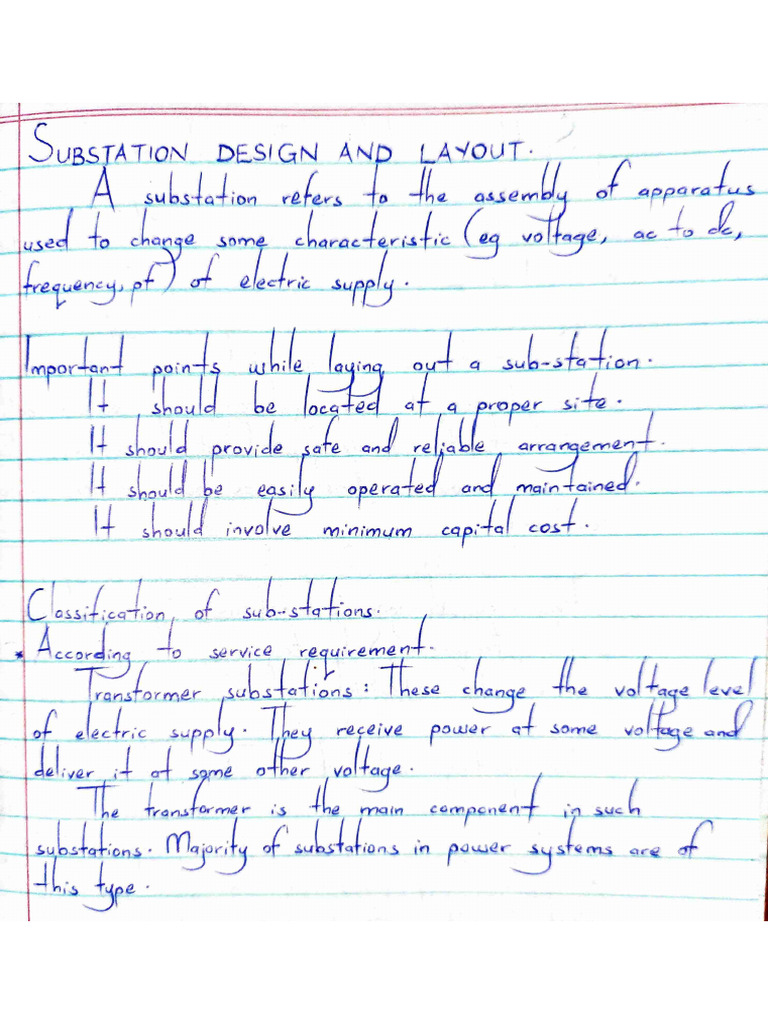 SUBSTATION DESIGN AND LAYOUT.
A substation refers to the assembly of apparatus
used to change some characteristic (eg voltage, ac to dc,
frequency, pf) of electric supply.
Important points while laying out a sub-station.
It should be located at a proper site.
It should provide safe and reliable arrangement.
It should be easily operated and maintained.
It should involve minimum capital cost.
Classification of sub-stations.
* According to service requirement.
Transformer substations: These change the voltage level
of electric supply. They receive power at some voltage and
deliver it at some other voltage.
The transformer is the main component in such
substations. Majority of substations in power systems are of
this type.